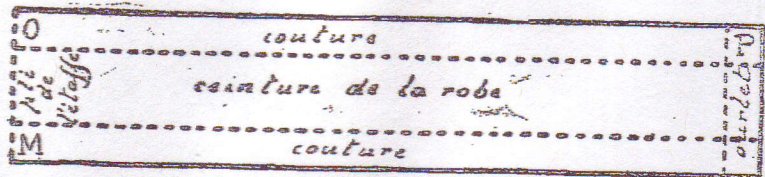 O
couture
pli
de
l'étoffe
ceinture de la robe
M
couture